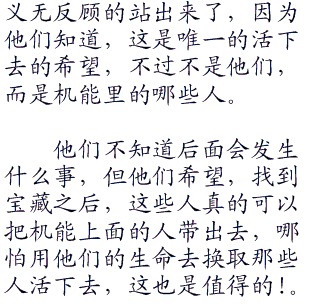 义无反顾的站出来了，因为
他们知道，这是唯一的活下
去的希望，不过不是他们，
而是机能里的哪些人。
他们不知道后面会发生
什么事，但他们希望，找到
宝藏之后，这些人真的可以
把机能上面的人带出去，哪
怕用他们的生命去换取那些
人活下去，这也是值得的！。